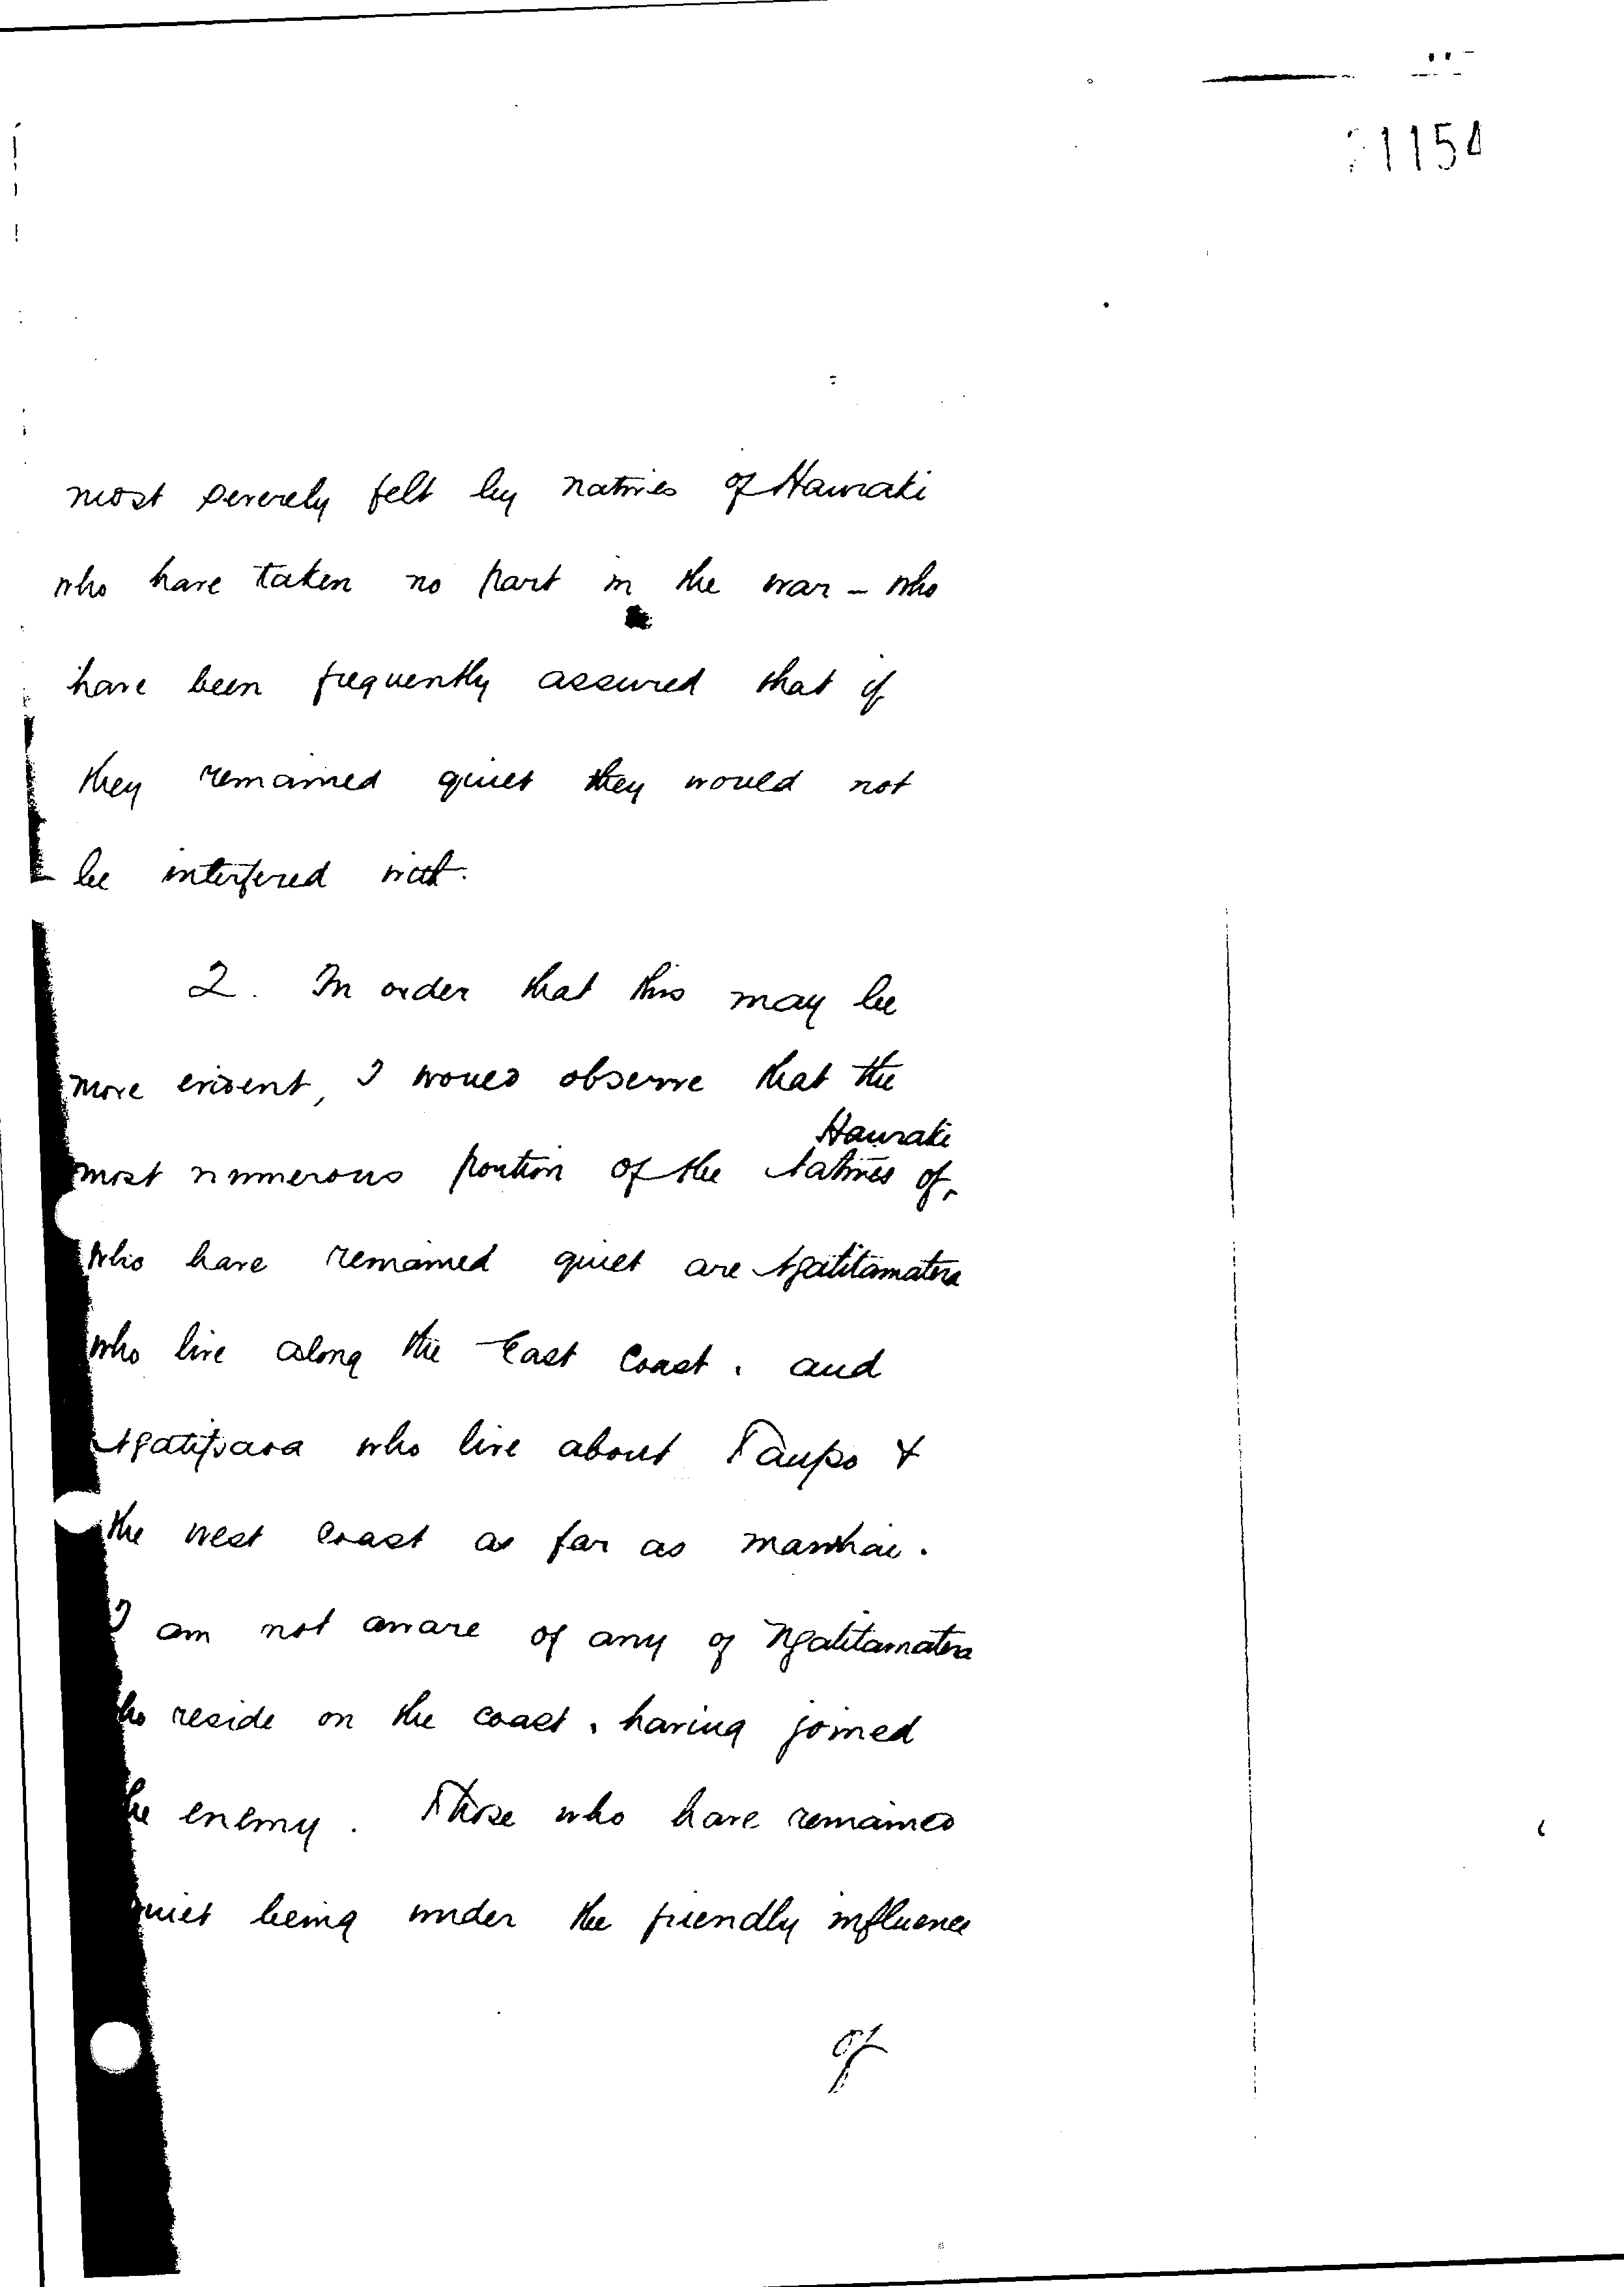 1154
most severely felt by natives of Hauraki
who have taken no part in the war – who
have been frequently assured that if
they remained quiet they would not
be interfered with.
2. In order that this may be
more evident, I would observe that the
Hauraki
most numerous portion of the Natives of
who have remained quiet are Ngatitamatera
who live along the East Coast, and
Ngatipaoa who live about Taupo &
the West Coast as far as
I am not aware of any of Ngatitamatera
who reside on the coast, having joined
the enemy. Those who have remained
quiet being under the friendly influence
of